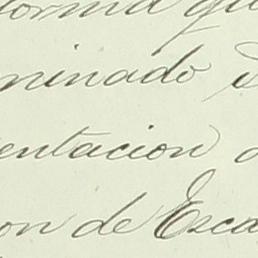 forma que
minado
entacion
on de Esca